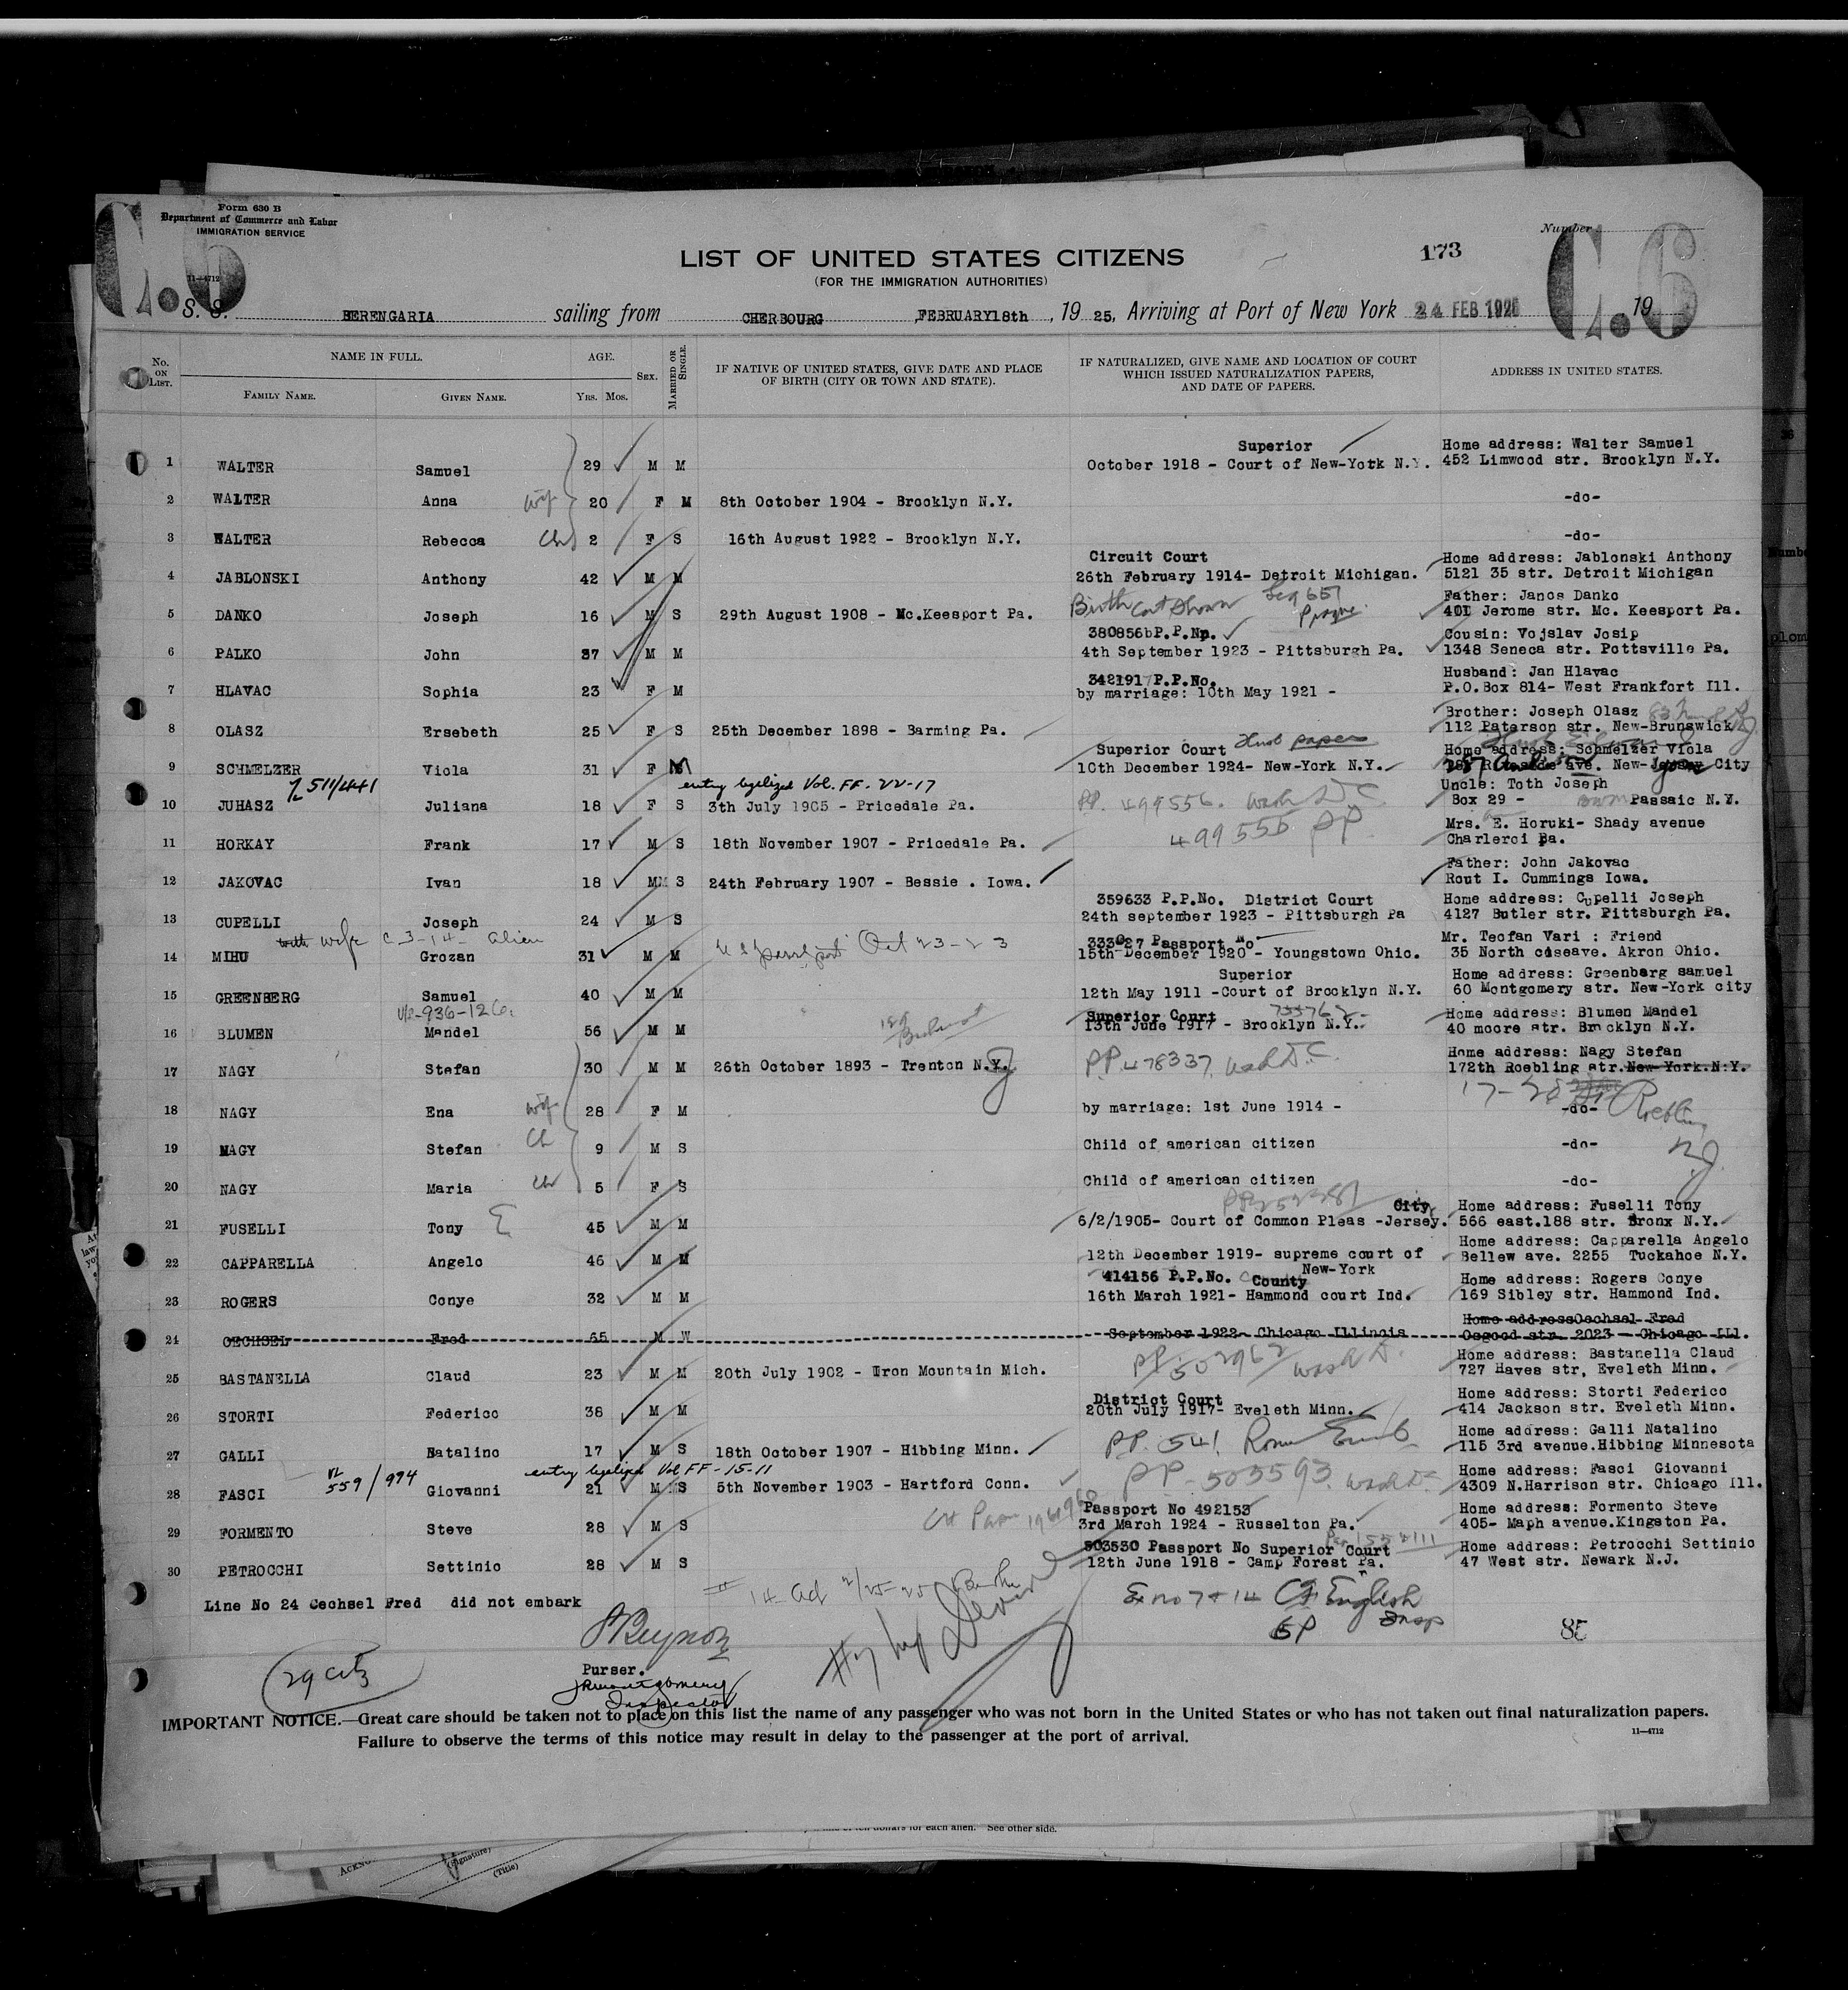 Form 630 B
Department of Commerce and Labor
IMMIGRATION SERVICE
11—4712
C. 6
Number
173
C. 6
LIST OF UNITED STATES CITIZENS
(FOR THE IMMIGRATION AUTHORITIES)
S. S. BERENGARIA sailing from CHERBOURG ,FEBRUARY18th , 19 25, Arriving at Port of New York 24 FEB 192 19
No. ON LIST.
NAME IN FULL.
FAMILY NAME. GIVEN NAME.
AGE.
YRS. MOS.
SEX.
MARRIED OR SINGLE.
IF NATIVE OF UNITED STATES, GIVE DATE AND PLACE OF BIRTH (CITY OR TOWN AND STATE).
IF NATURALIZED, GIVE NAME AND LOCATION OF COURT WHICH ISSUED NATURALIZATION PAPERS, AND DATE OF PAPERS.
ADDRESS IN UNITED STATES.
Superior Home address: Walter Samuel
1 WALTER Samuel 29 M M October 1918 - Court of New-York N.Y. 452 Limwood str. Brooklyn N.Y.
2 WALTER Anna wife 20 F M 8th October 1904 - Brooklyn N.Y. -do-
3 WALTER Rebecca Ch 2 F S 16th August 1922 - Brooklyn N.Y. -do-
Circuit Court Home address: Jablonski Anthony
4 JABLONSKI Anthony 42 M M 26th February 1914- Detroit Michigan. 5121 35 str. Detroit Michigan
Birth Cert Shown Father: Janos Danko
5 DANKO Joseph 16 M S 29th August 1908 - Mc.Keesport Pa. Prague. 401 Jerome str. Mc. Keesport Pa.
380856b P.P.No. Cousin: Vojslav Josip
6 PALKO John 37 M M 4th September 1923 - Pittsburgh Pa. 1348 Seneca str. Pottsville Pa.
342191 P.P.No. Husband: Jan Hlavac
7 HLAVAC Sophia 23 F M by marriage: 10th May 1921 - P.O.Box 814- West Frankfort Ill.
Brother: Joseph Olasz
8 OLASZ Ersebeth 25 F S 25th December 1898 - Barming Pa. 112 Paterson str. New-Brunswick
Superior Court paper Home address: Schmelzer Viola
9 SCHMELZER Viola 31 F 10th December 1924- New-York N.Y. ave. New- City
511/441 entry legalized Vol. FF. 22-17 Uncle: Toth Joseph
10 JUHASZ Juliana 18 F S 3th July 1905 - Pricedale Pa. PP. 499556. Wash D C Box 29 - Passaic N.Y.
499555 PP Mrs. E. Horuki- Shady avenue
11 HORKAY Frank 17 M S 18th November 1907 - Pricedale Pa. Charleroi Pa.
Father: John Jakovac
12 JAKOVAC Ivan 18 M S 24th February 1907 - Bessie . Iowa. Rout I. Cummings Iowa.
359633 P.P.No. District Court Home address: Cupelli Joseph
13 CUPELLI Joseph 24 M S 24th september 1923 - Pittsburgh Pa 4127 Butler str. Pittsburgh Pa.
with wife C-3-14- alien 333027 Passport No Mr. Teofan Vari : Friend
14 MIHU Grozan 31 M M U S passport Oct 23-23 15th December 1920 - Youngstown Ohio. 35 North coseave. Akron Ohio.
Superior Home address: Greenberg samuel
15 GREENBERG Samuel 40 M M 12th May 1911 -Court of Brooklyn N.Y. 60 Montgomery str. New-York city
Superior Court Home address: Blumen Mandel
16 BLUMEN Mandel 56 M M 13th June 1917 - Brooklyn N.Y. 40 moore str. Brocklyn N.Y.
Home address: Nagy Stefan
17 NAGY Stefan 30 M M 26th October 1893 - Trenton N.J. P.P. 478337. Wash D.C. 172th Roebling str.New-York.N.Y.
18 NAGY Ena wife 28 F M by marriage: 1st June 1914 - -do- Roebling
19 NAGY Stefan Ch 9 M S Child of american citizen -do- N.J.
20 NAGY Maria Ch 5 F S Child of american citizen -do-
City Home address: Fuselli Tony
21 FUSELLI Tony 45 M M 6/2/1905- Court of Common Pleas -Jersey. 566 east.188 str. Bronx N.Y.
Home address: Capparella Angelo
22 CAPPARELLA Angelo 46 M M 12th December 1919- supreme court of New-York Bellew ave. 2255 Tuckahoe N.Y.
414156 P.P.No. County Home address: Rogers Conye
23 ROGERS Conye 32 M M 16th March 1921- Hammond court Ind. 169 Sibley str. Hammond Ind.
Home addressOechsel Fred
24 OECHSEL Fred 65 M W September 1922- Chicago Illinois Osgood str. 2023 - Chicago Ill.
PP. 502962 Wash D. Home address: Bastanella Claud
25 BASTANELLA Claud 23 M M 20th July 1902 - Iron Mountain Mich. 727 Haves str, Eveleth Minn.
District Court Home address: Storti Federico
26 STORTI Federico 38 M M 20th July 1917- Eveleth Minn. 414 Jackson str. Eveleth Minn.
PP. 541. Rome Home address: Galli Natalino
27 GALLI Natalino 17 M S 18th October 1907 - Hibbing Minn. 115 3rd avenue.Hibbing Minnesota
559/994 entry legalized Vol FF-15-11 PP-503593. Wash D C Home address: Fasci Giovanni
28 FASCI Giovanni 21 M S 5th November 1903 - Hartford Conn. 4309 N.Harrison str. Chicago Ill.
Passport No 492153 Home address: Formento Steve
29 FORMENTO Steve 28 M S 3rd March 1924 - Russelton Pa. 405- Maph avenue.Kingston Pa.
503530 Passport No Superior Court Home address: Petrocchi Settinio
30 PETROCCHI Settinio 28 M S 12th June 1918 - Camp Forest Pa. 47 West str. Newark N.J.
Line No 24 Oechsel Fred did not embark
14 ad 2/25-25
Ex no 7 + 14 English
Insp
Purser.
29 citz
JR Montgomery
Inspector
IMPORTANT NOTICE.—Great care should be taken not to place on this list the name of any passenger who was not born in the United States or who has not taken out final naturalization papers.
Failure to observe the terms of this notice may result in delay to the passenger at the port of arrival.
11—4712
for each alien. See other side.
(Signature)
(Title)